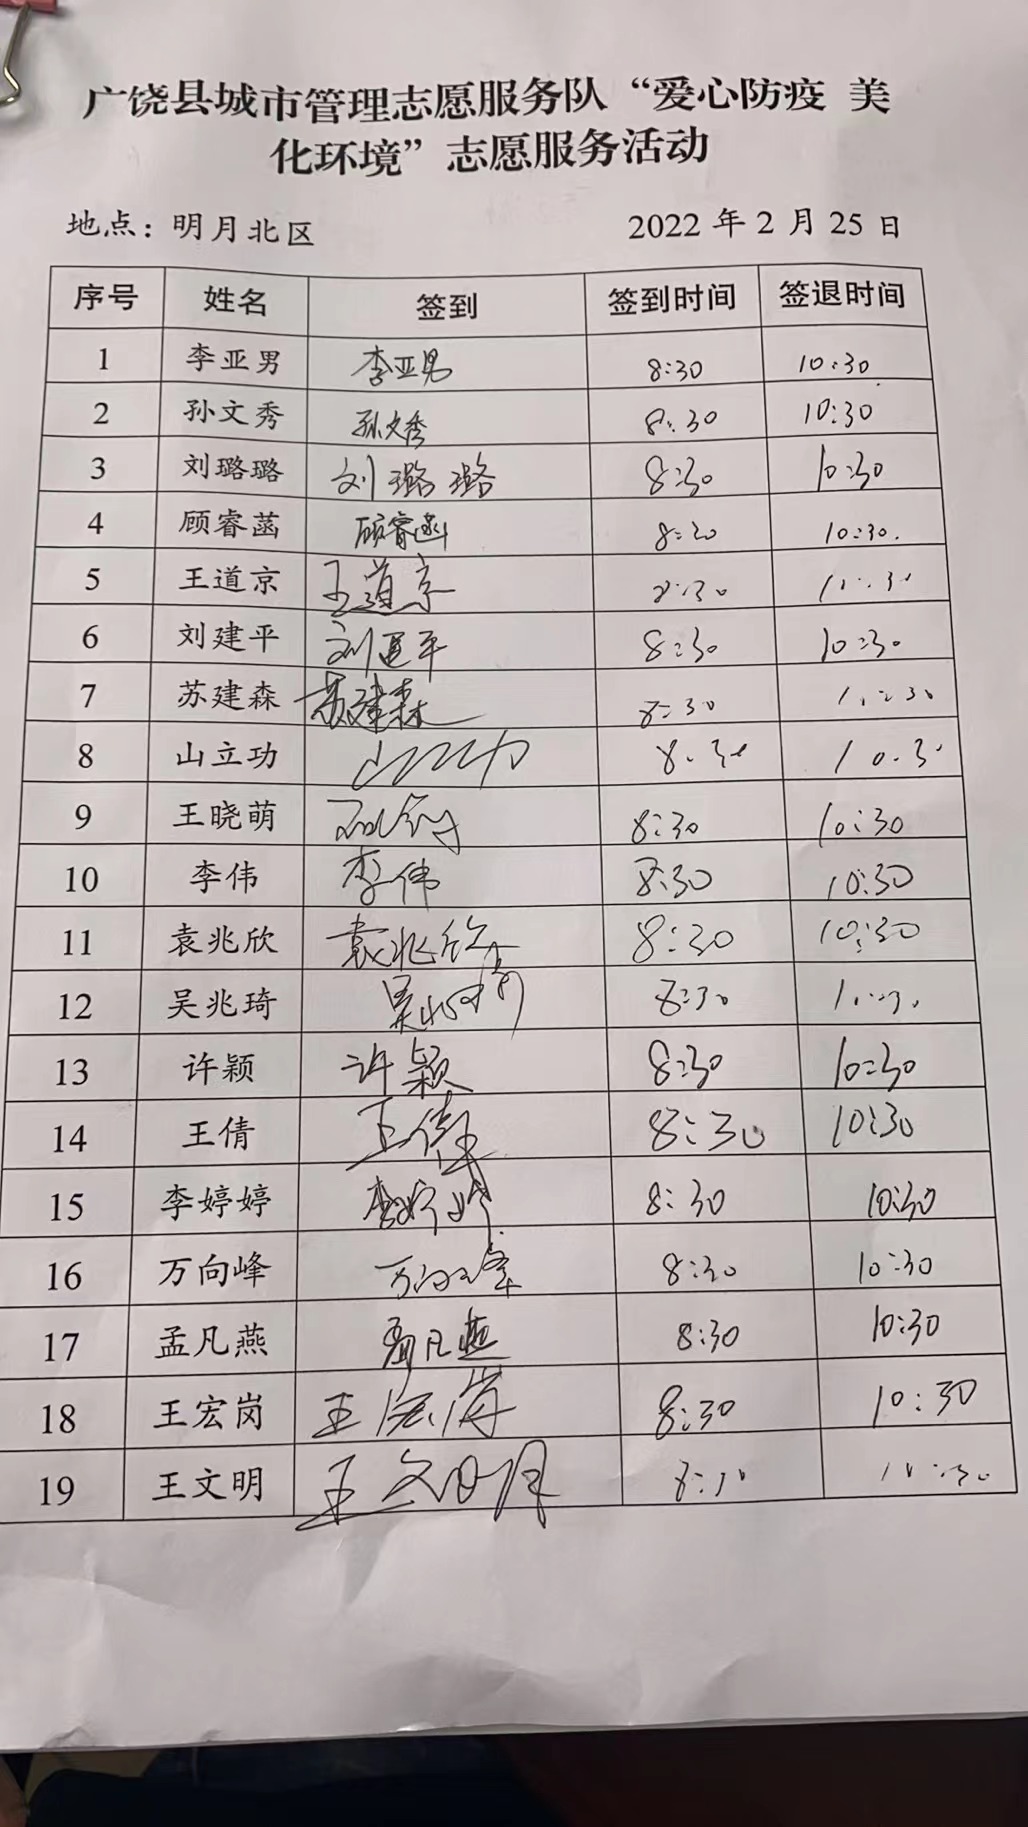 广饶县城市管理志愿服务队“爱心防疫 美
化环境”志愿服务活动
地点：明月北区 2022 年 2 月 25 日
序号 姓名 签到 签到时间 签退时间
1 李亚男 李亚男 8:30 10:30
2 孙文秀 孙文秀 8:30 10:30
3 刘璐璐 刘璐璐 8:30 10:30
4 顾睿菡 顾睿函 8:30 10:30.
5 王道京 王道京 8:30
6 刘建平 刘建平 8:30 10:30
7 苏建森 苏建森 8:30
8 山立功 山立功 8:30 10:30
9 王晓萌 8:30 10:30
10 李伟 李伟 8:30 10:30
11 袁兆欣 袁兆欣 8:30 10:30
12 吴兆琦 吴兆琦 8:30
13 许颖 许颖 8:30 10:30
14 王倩 王倩 8:30 10:30
15 李婷婷 李婷婷 8:30 10:30
16 万向峰 万向峰 8:30 10:30
17 孟凡燕 孟凡燕 8:30 10:30
18 王宏岗 王宏岗 8:30 10:30
19 王文明 王文明